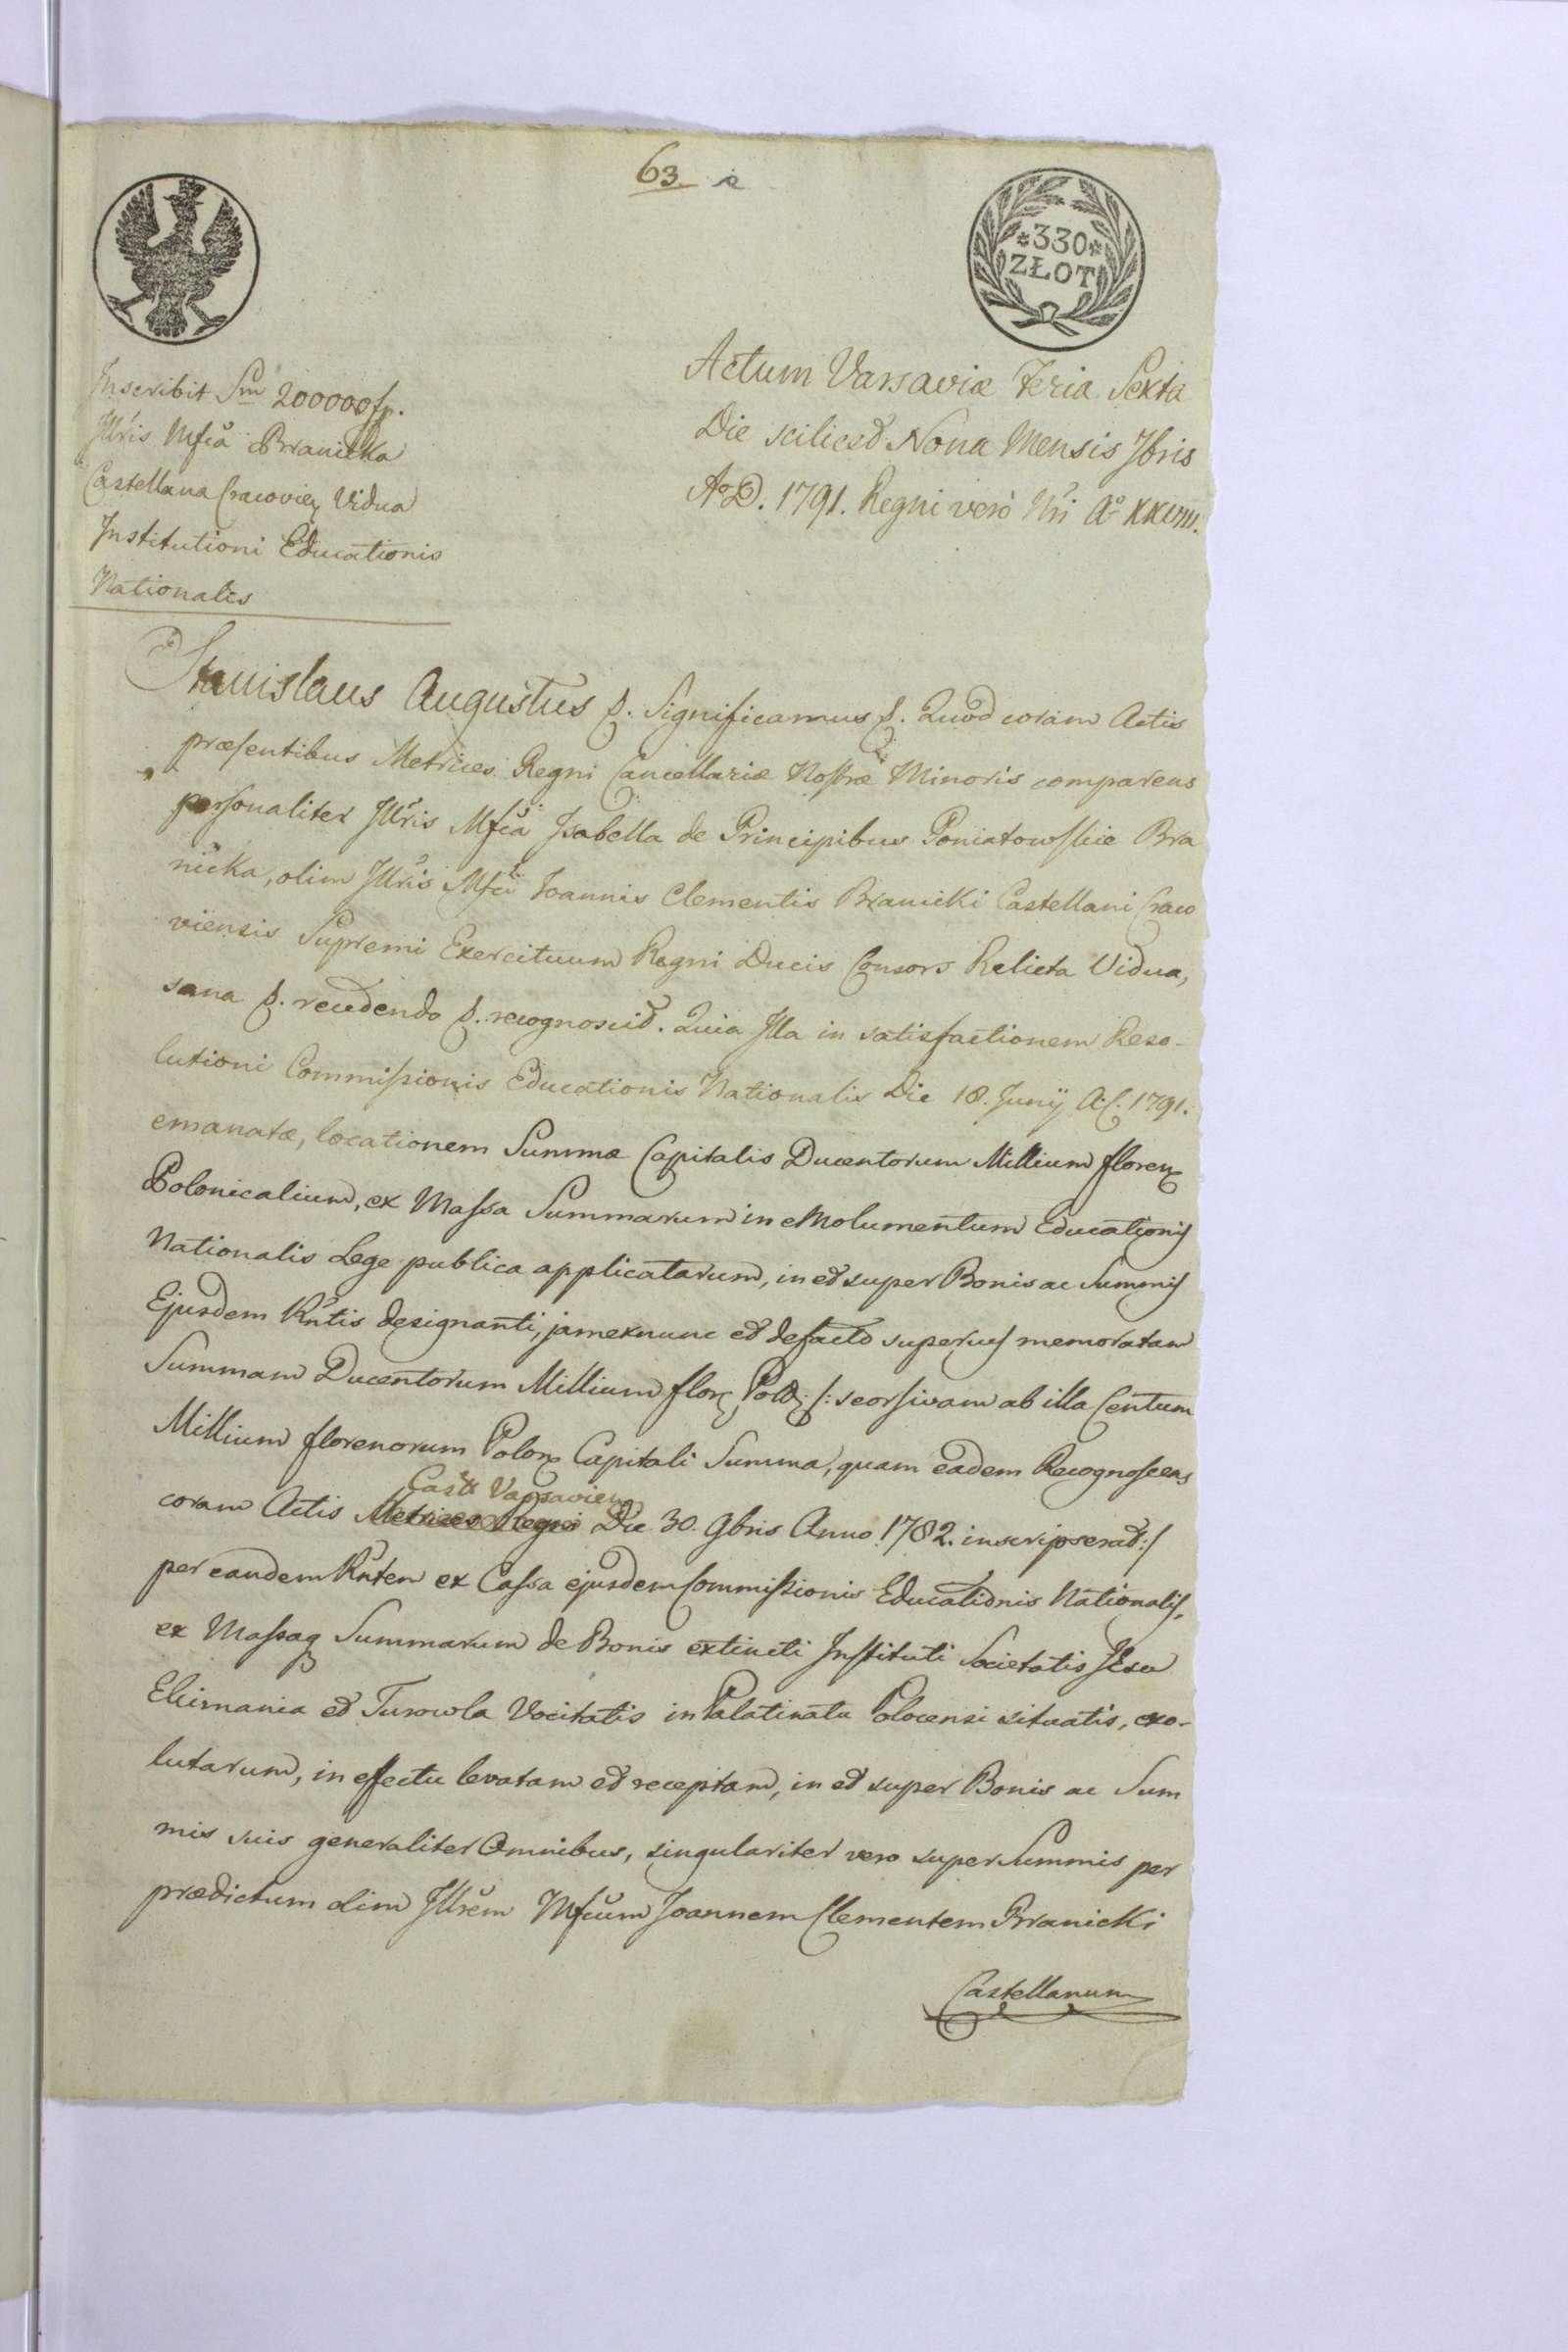 63.
*330*
ZŁOT
Inscribit Sm̄ 200000 fp.
Jllr̃is Mfc̃a Branicka
Castellana Cracovien Vidua
Institutioni Educationis
Nationalis
Actum Varsaviæ Feria Sexta
Die scilicet Nona Mensis 7bris
Aº D. 1791. Regni verò Nr̃i Aº XXVIII.
Stanislaus Augustus &. Significamus &. Quod coram Actis
præsentibus Metrices Regni Cancellariæ Nostræ Minoris comparens
personaliter Jllr̃is Mfc̃a Isabella de Principibus Poniatowskie Bra
nicka, olim Jllr̃is Mfc̃i Joannis Clementis Branicki Castellani Craco
viensis Supremi Exercituum Regni Ducis Consors Relicta Vidua,
sana &. recedendo &. recognoscit. Quia Jlla in satisfactionem Reso-
lutioni Commissionis Educationis Nationalis Die 18. Junÿ A.C. 1791.
emanatæ, locationem Summæ Capitalis Ducentorum Millium floren
Polonicalium, ex Massa Summarum in emolumentum Educationis
Nationalis Lege publica applicatarum, in et super Bonis ac Summis
Ejusdem Rn̄tis designanti, jam exnunc et defacto superius memoratam
Summam Ducentorum Millium flor. Pold. /: seorsivam ab illa Centum
Millium florenorum Polon Capitali Summa, quam eadem Recognoscens
Castr Varsavien
coram Actis Metrices Regni Die 30. 9bris Anno 1782. inscripserat :/
per eandem Rn̄ten ex Cassa ejusdem Commissionis Educationis Nationalis,
ex Massaq Summarum de Bonis extincti Instituti Societatis Jesu
Ekimania et Turowla Vocitatis in Palatinatu Polocensi situatis, exo-
lutarum, in effectu levatam et receptam, in et super Bonis ac Sum
mis suis generaliter Omnibus, singulariter vero super Summis per
prædictum olim Jllr̃em Mfc̃um Joannem Clementem Branicki
Castellanum